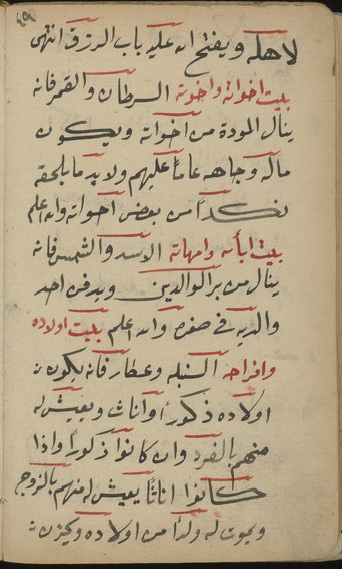 ٤٩
لاهله ويفتح الله عليه باب الرزق انتهى
بيت اخوانه واخوته السرطان والقمر فانه
ينال المودة من اخوانه ويكون
ماله وجاهه عاماً عليهم ولا بد ما يلحقه
نكداً من بعض اخوانه والله اعلم
بيت ابائه وامهاته الاسد والشمس فانه
ينال من بر الوالدين ويدفن احد
والديه في صغره والله اعلم بيت اولاده
وافراحه السنبله وعطارد فانه يكون
اولاده ذكوراً واناث ويعيش له
منهم بالفرد وان كانوا ذكوراً واذا
كانوا اناثاً يعيش له منهم بالزوج
ويموت له ولداً من اولاده ويحزن